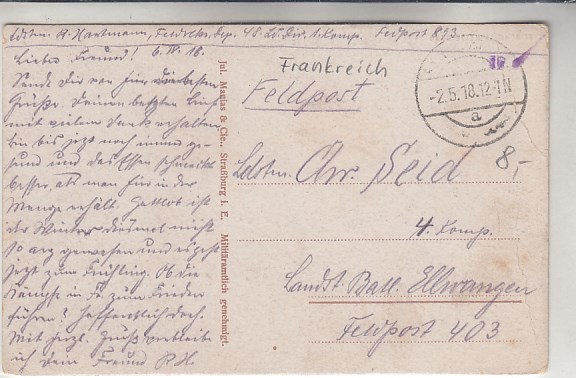 Ldstm. R. Hartmann, Feldrekr. Dep. 48. Ldw. Div. 1. Komp. Feldpost 893
Lieber Freund! 6. IV. 18.
Sende dir von hier die besten
Grüße. Deinen letzten Brief
mit vielem Dank erhalten,
bin bis jetzt noch immer ge-
sund und das Essen schmeckt
besser, als man hier in der
Menge erhält. Gottlob ist
der Winter diesmal nicht
so arg gewesen und es geht
jetzt zum Frühling. Ob die
Kämpfe in Fr. zum Frieden
führen? Hoffentlich doch.
Mit herzl. Gruß verbleibe
ich dein Freund R. H.
Jul. Manias & Cie., Straßburg i. E. Militäramtlich genehmigt.
Frankreich
Feldpost
-2.5.18.12-1N
a
8,-
Ldstm. Chr. Seid
4. Komp.
Landst. Batl. Ellwangen
Feldpost 403